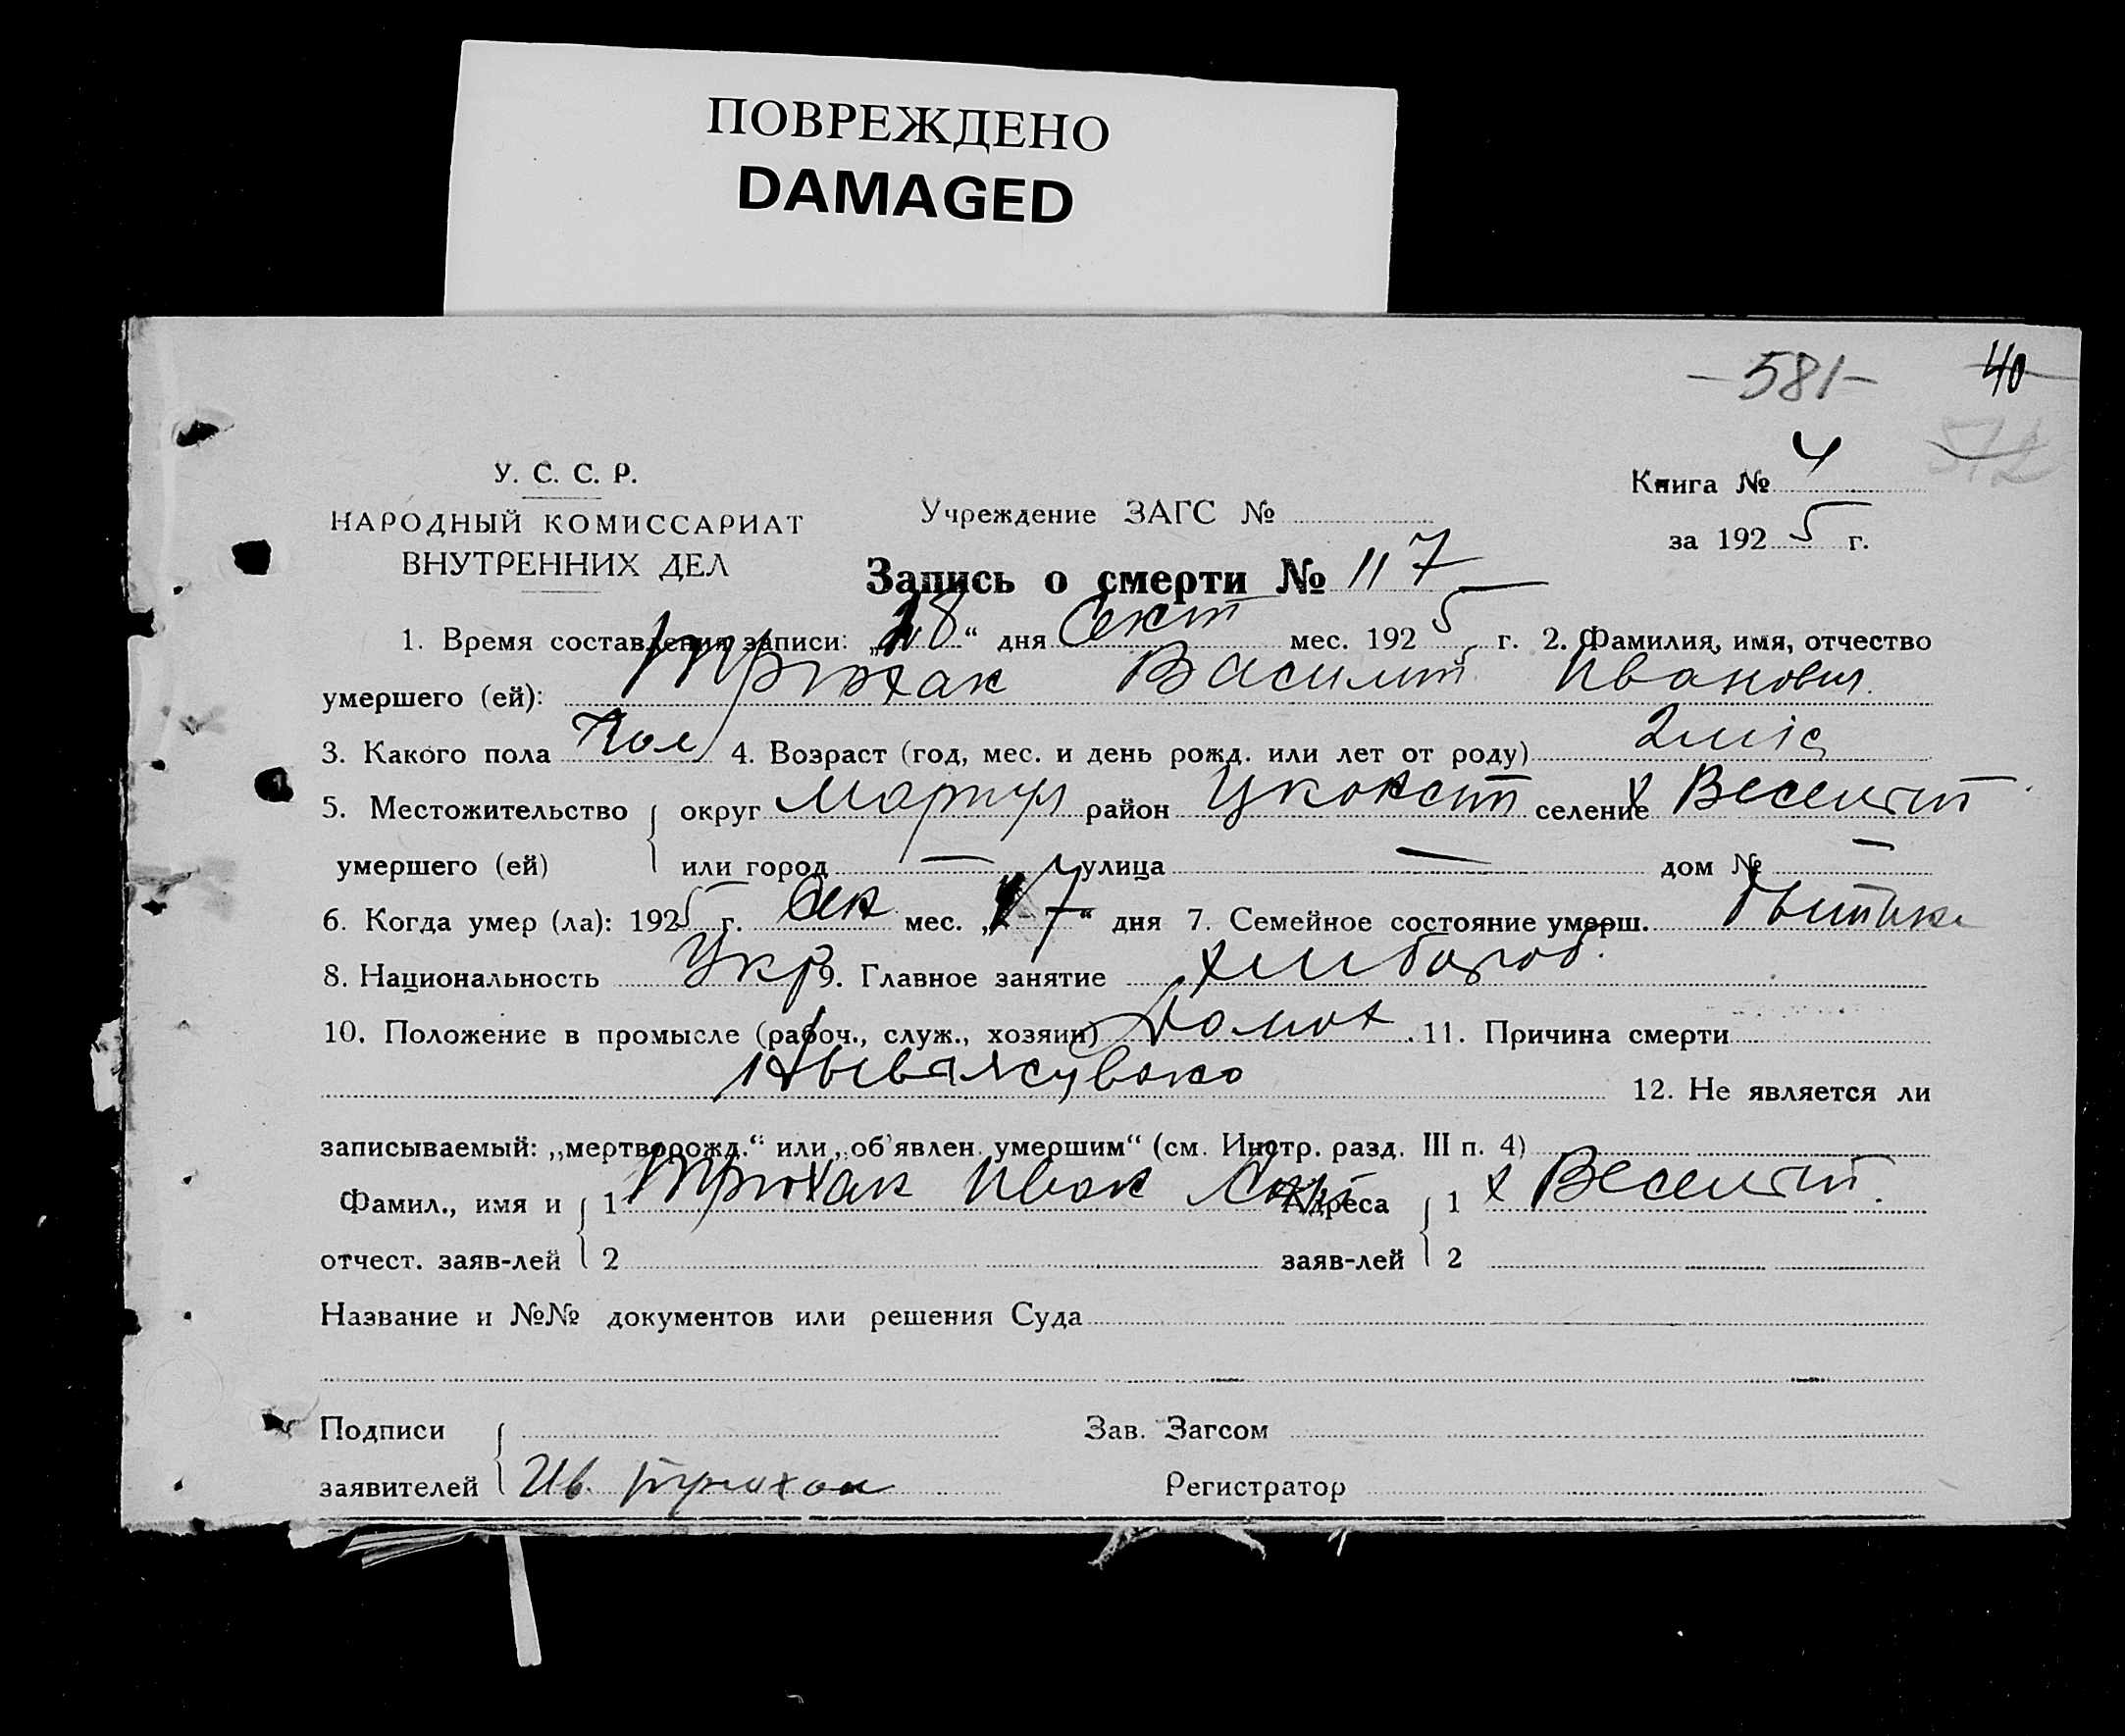 ПОВРЕЖДЕНО
DAMAGED
-581- 40
У. С. С. Р.
НАРОДНЫЙ КОМИССАРИАТ
ВНУТРЕННИХ ДЕЛ
Учреждение ЗАГС №
Книга № 4
за 1925 г.
Запись о смерти № 117
1. Время составления записи: „18“ дня Сент мес. 1925 г. 2. Фамилия, имя, отчество
умершего (ей): Трюхан Василий Иванович
3. Какого пола 4. Возраст (год, мес. и день рожд. или лет от роду)
5. Местожительство округ Мариуп район селение х Веселый
умершего (ей) или город — улица — дом № —
6. Когда умер (ла): 1925 г. Сен мес. „17“ дня 7. Семейное состояние умерш.
8. Национальность Укр 9. Главное занятие хлібороб.
10. Положение в промысле (рабоч., служ., хозяин) 11. Причина смерти
12. Не является ли
записываемый: „мертворожд.“ или „об'явлен умершим“ (см. Инстр. разд. III п. 4)
Фамил., имя и 1 Трюхан Иван Адреса 1 х Веселый.
отчест. заяв-лей 2 заяв-лей 2
Название и №№ документов или решения Суда
Подписи Зав. Загсом
заявителей Ив. Трюхан Регистратор